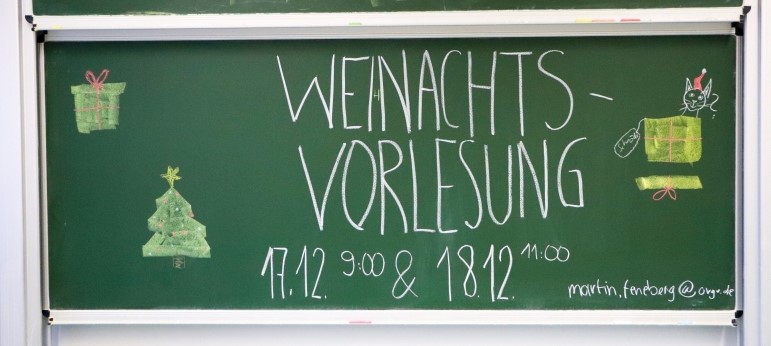 WEIHNACHTS-
VORLESUNG
17.12. 9:00 & 18.12. 11:00
martin.feneberg@ovgu.de